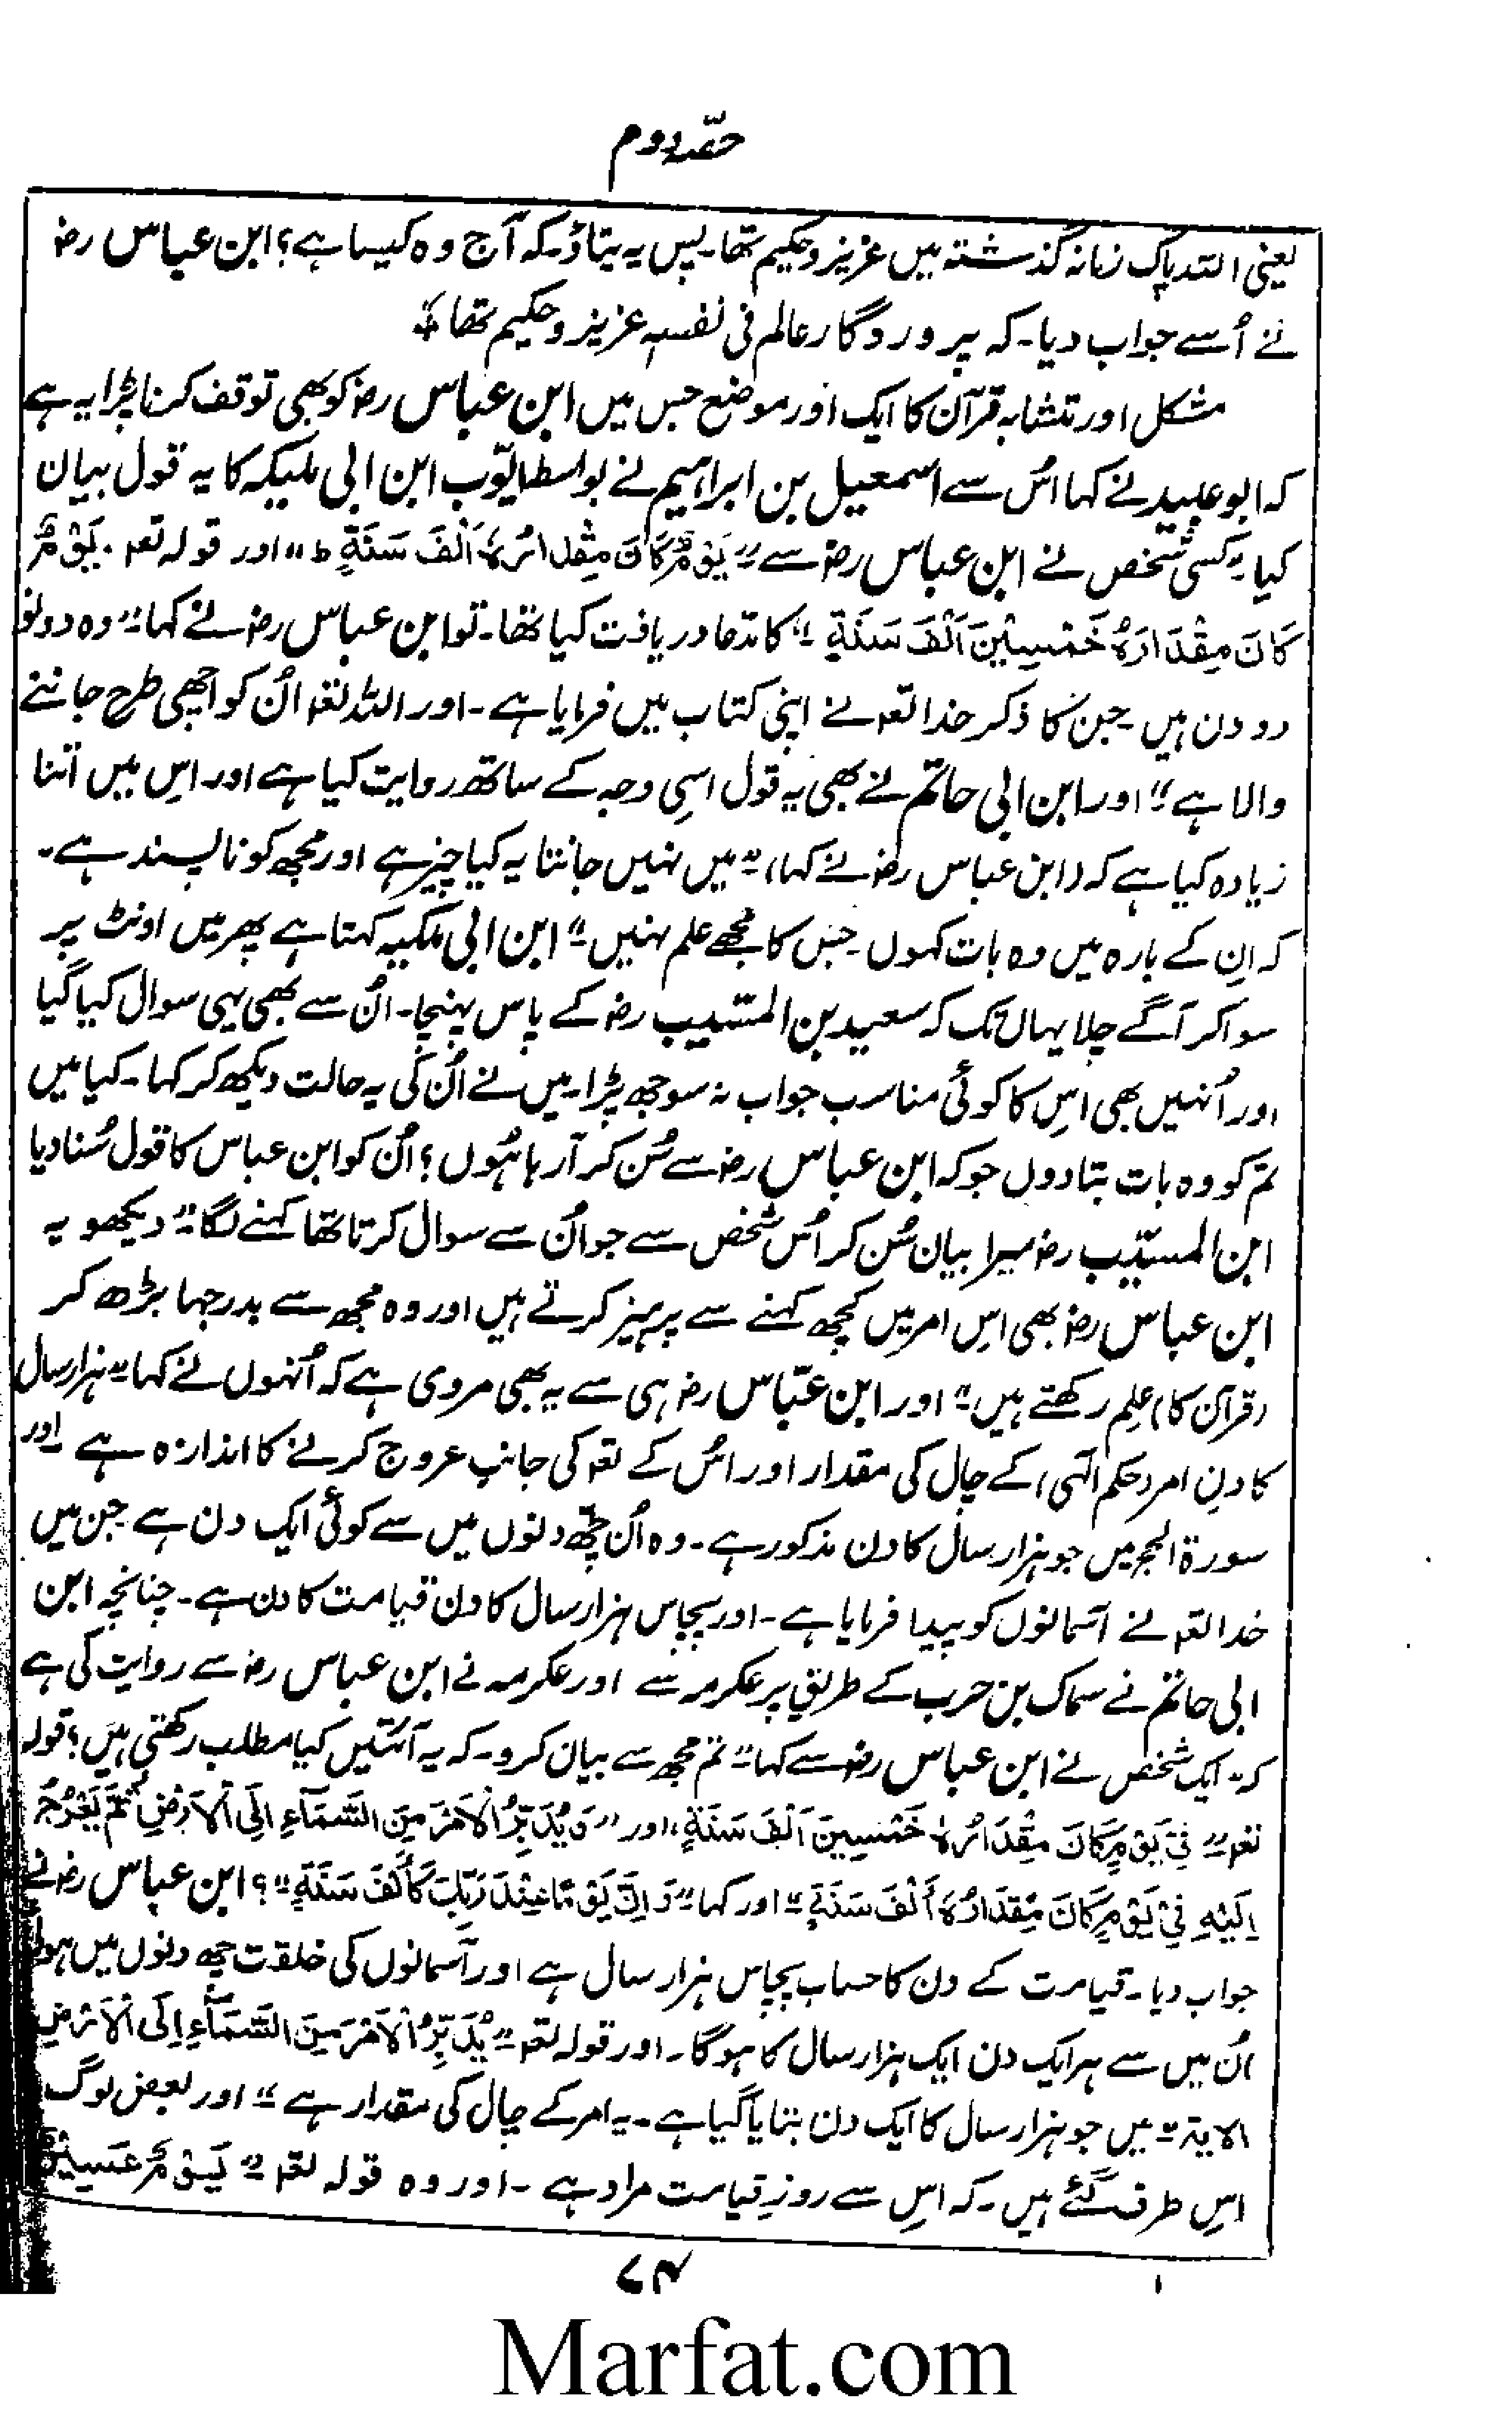 حصّہ دوم
یعنی اللہ پاک زمانہ گذشتہ میں عزیز و حکیم تھا۔ پس یہ بتاؤ۔ کہ آج وہ کیسا ہے؟ ابن عباس رضؓ
نے اُسے جواب دیا۔ کہ پروردگار عالم فی نفسہٖ عزیز و حکیم تھا ؞
مشکل اور متشابہ قرآن کا ایک اور موضع جس میں ابن عباس رضؓ کو بھی توقف کرنا پڑا یہ ہے
کہ ابو عبید نے کہا اُس سے اسمٰعیل بن ابراہیم نے بواسطہ ایّوب ابن ابی ملیکہ کا یہ قول بیان
کیا "کسی شخص نے ابن عباس رضؓ سے "یَوْمٌ کَانَ مِقْدَارُہٗ اَلْفَ سَنَةٍ ط" اور قولہ تعہ۔ یَوْمٌ
کَانَ مِقْدَارُہٗ خَمْسِیْنَ اَلْفَ سَنَةٍ" کا مدّعا دریافت کیا تھا۔ تو ابن عباس رضؓ نے کہا "وہ دونو
دو دن ہیں۔ جن کا ذکر خدا تعہ نے اپنی کتاب میں فرمایا ہے۔ اور اللہ تعہ اُن کو اچھی طرح جاننے
والا ہے" اور ابن ابی حاتم نے بھی یہ قول اسی وجہ کے ساتھ روایت کیا ہے اور اِس میں اتنا
زیادہ کیا ہے کہ (ابن عباس رضؓ نے کہا) "میں نہیں جانتا یہ کیا چیز ہے اور مجھ کو ناپسند ہے۔
کہ اِن کے بارہ میں وہ بات کہوں۔ جس کا مجھے علم نہیں" ابن ابی ملکیہ کہتا ہے پھر میں اونٹ پر
سوا کر آگے چلا یہاں تک کہ سعید بن المسّیب رضؓ کے پاس پہنچا۔ اُن سے بھی یہی سوال کیا گیا
اور اُنہیں بھی اِس کا کوئی مناسب جواب نہ سوجھ پڑا۔ میں نے اُن کی یہ حالت دیکھ کر کہا۔ کیا میں
تم کو وہ بات بتا دوں جو کہ ابن عباس رضؓ سے سُن کر آ رہا ہُوں؟ اُن کو ابن عباس کا قول سُنا دیا
ابن المسیّب رضؓ میرا بیان سُن کر اُس شخص سے جو اُن سے سوال کرتا تھا کہنے لگا "دیکھو یہ
ابن عباس رضؓ بھی اِس امر میں کچھ کہنے سے پرہیز کرتے ہیں اور وہ مجھ سے بدرجہا بڑھ کر
(قرآن کا) عِلم رکھتے ہیں" اور ابن عبّاس رضؓ ہی سے یہ بھی مروی ہے کہ اُنہوں نے کہا "ہزار سال
کا دن امر (حکم الٰہی) کے چال کی مقدار اور اُس کے تعہ کی جانب عروج کرنے کا اندازہ ہے اور
سورۃ الحج میں جو ہزار سال کا دن مذکور ہے۔ وہ اُن چھ دنوں میں سے کوئی ایک دن ہے جن میں
خدا تعہ نے آسمانوں کو پیدا فرمایا ہے۔ اور پچاس ہزار سال کا دن قیامت کا دن ہے۔ چنانچہ ابن
ابی حاتم نے سماک بن حرب کے طریق پر عکرمہ سے اور عکرمہ نے ابن عباس رضؓ سے روایت کی ہے
کہ "ایک شخص نے ابن عباس رضؓ سے کہا "تم مجھ سے بیان کرو۔ کہ یہ آئتیں کیا مطلب رکھتی ہیں؟ قولہ
تعہ "فِیْ یَوْمٍ کَانَ مِقْدَارُہٗ خَمْسِینَ اَلْفَ سَنَةٍ" اور "وَیُدَبِّرُ الْاَمْرَ مِنَ السَّمَآءِ اِلَی الْاَرْضِ ثُمَّ یَعْرُجُ
اِلَیْہِ فِیْ یَوْمٍ کَانَ مِقْدَارُہٗ أَلْفَ سَنَةٍ" اور کہا "وَاِنَّ یَوْمًا عِنْدَ رَبِّکَ کَأَلْفَ سَنَةٍ"؟ ابن عباس رضؓ نے
جواب دیا۔ قیامت کے دن کا حساب پچاس ہزار سال ہے اور آسمانوں کی خلقت چھ دنوں میں ہوئی
اُن میں سے ہر ایک دن ایک ہزار سال کا ہوگا۔ اور قولہ تعہ "یُدَبِّرُ الْاَمْرَ مِنَ السَّمَآءِ اِلَی الْاَرْضِ
الایۃ" میں جو ہزار سال کا ایک دن بتایا گیا ہے۔ یہ امر کے چال کی مقدار ہے" اور بعض لوگ
اِس طرف گئے ہیں۔ کہ اِس سے روزِ قیامت مراد ہے۔ اور وہ قولہ تعہ "یَوْمٌ عَسِیْرٌ
Marfat.com